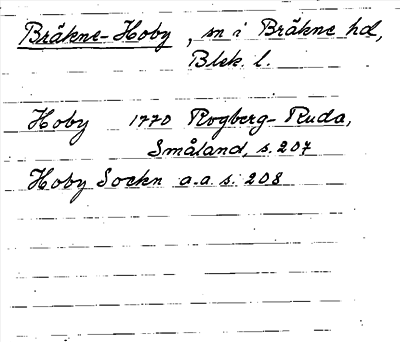 Bräkne-Hoby, sn i Bräkne hd,
Blek. l.
Hoby 1770 Rogberg-Ruda,
Småland, s. 207
Hoby Sockn a.a. s. 208